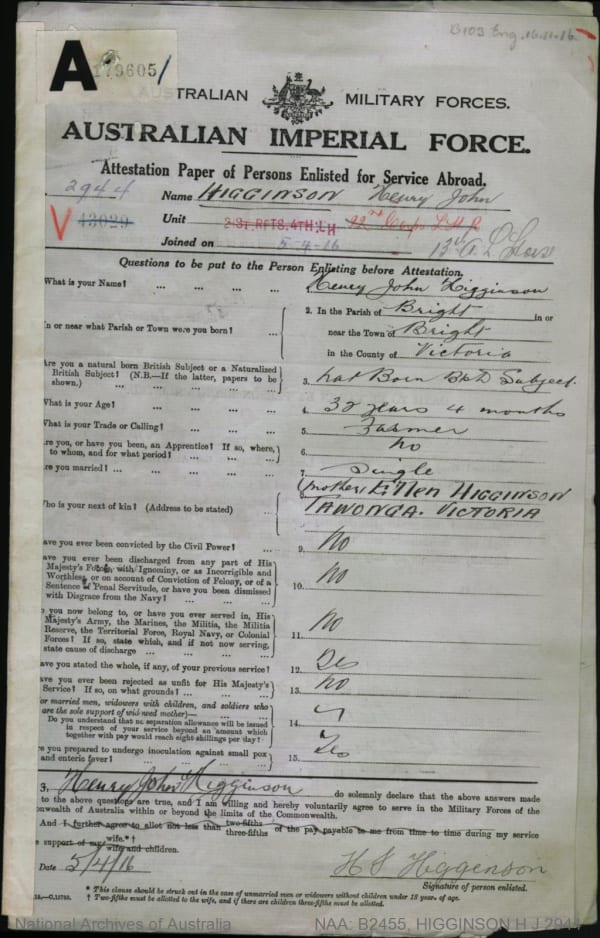 B103 Eng. 16.11.16.
A
179605/
AUSTRALIAN MILITARY FORCES.
AUSTRALIAN IMPERIAL FORCE.
Attestation Paper of Persons Enlisted for Service Abroad.
2944
Name HIGGINSON Henry John
V 43029
Unit 21ST. RFTS. 4TH. LH
Joined on 5-4-16
Questions to be put to the Person Enlisting before Attestation.
What is your Name? ... ... ... ... Henry John Higginson
2. In the Parish of Bright in or
In or near what Parish or Town were you born? ... near the Town of Bright
in the County of Victoria
Are you a natural born British Subject or a Naturalized
British Subject? (N.B.—If the latter, papers to be
shown.) ... ... ... ... ... 3. Nat Born Brit Subject.
What is your Age? ... ... ... ... 4. years 4 months
What is your Trade or Calling? ... ... ... 5. Farmer
Are you, or have you been, an Apprentice? If so, where,
to whom, and for what period? ... ... ... 6. No
Are you married? ... ... ... ... 7. Single
(mother) Ellen HIGGINSON
Who is your next of kin? (Address to be stated)
TAWONGA. VICTORIA
Have you ever been convicted by the Civil Power? ... 9. No
Have you ever been discharged from any part of His
Majesty's Forces, with Ignominy, or as Incorrigible and
Worthless, or on account of Conviction of Felony, or of a
Sentence of Penal Servitude, or have you been dismissed
with Disgrace from the Navy? ... ... 10. No
Do you now belong to, or have you ever served in, His
Majesty's Army, the Marines, the Militia, the Militia
Reserve, the Territorial Force, Royal Navy, or Colonial
Forces? If so, state which, and if not now serving,
state cause of discharge ... ... ... 11. No
Have you stated the whole, if any, of your previous service? 12. Yes
Have you ever been rejected as unfit for His Majesty's
Service? If so, on what grounds? ... ... 13. No
(For married men, widowers with children, and soldiers who
are the sole support of widowed mother)—
Do you understand that no separation allowance will be issued
in respect of your service beyond an amount which
together with pay would reach eight shillings per day? 14.
Are you prepared to undergo inoculation against small pox
and enteric fever? ... ... ... ... 15. Yes
3, Henry John Higginson do solemnly declare that the above answers made
to the above questions are true, and I am willing and hereby voluntarily agree to serve in the Military Forces of the
Commonwealth of Australia within or beyond the limits of the Commonwealth.
And I further agree to allot not less than two-fifths three-fifths of the pay payable to me from time to time during my service
support of my wife.*† wife and children.
Date 5/4/16
H J Higgenson
Signature of person enlisted.
* This clause should be struck out in the case of unmarried men or widowers without children under 18 years of age.
† Two-fifths must be allotted to the wife, and if there are children three-fifths must be allotted.
National Archives of Australia
NAA: B2455, HIGGINSON H J 2944